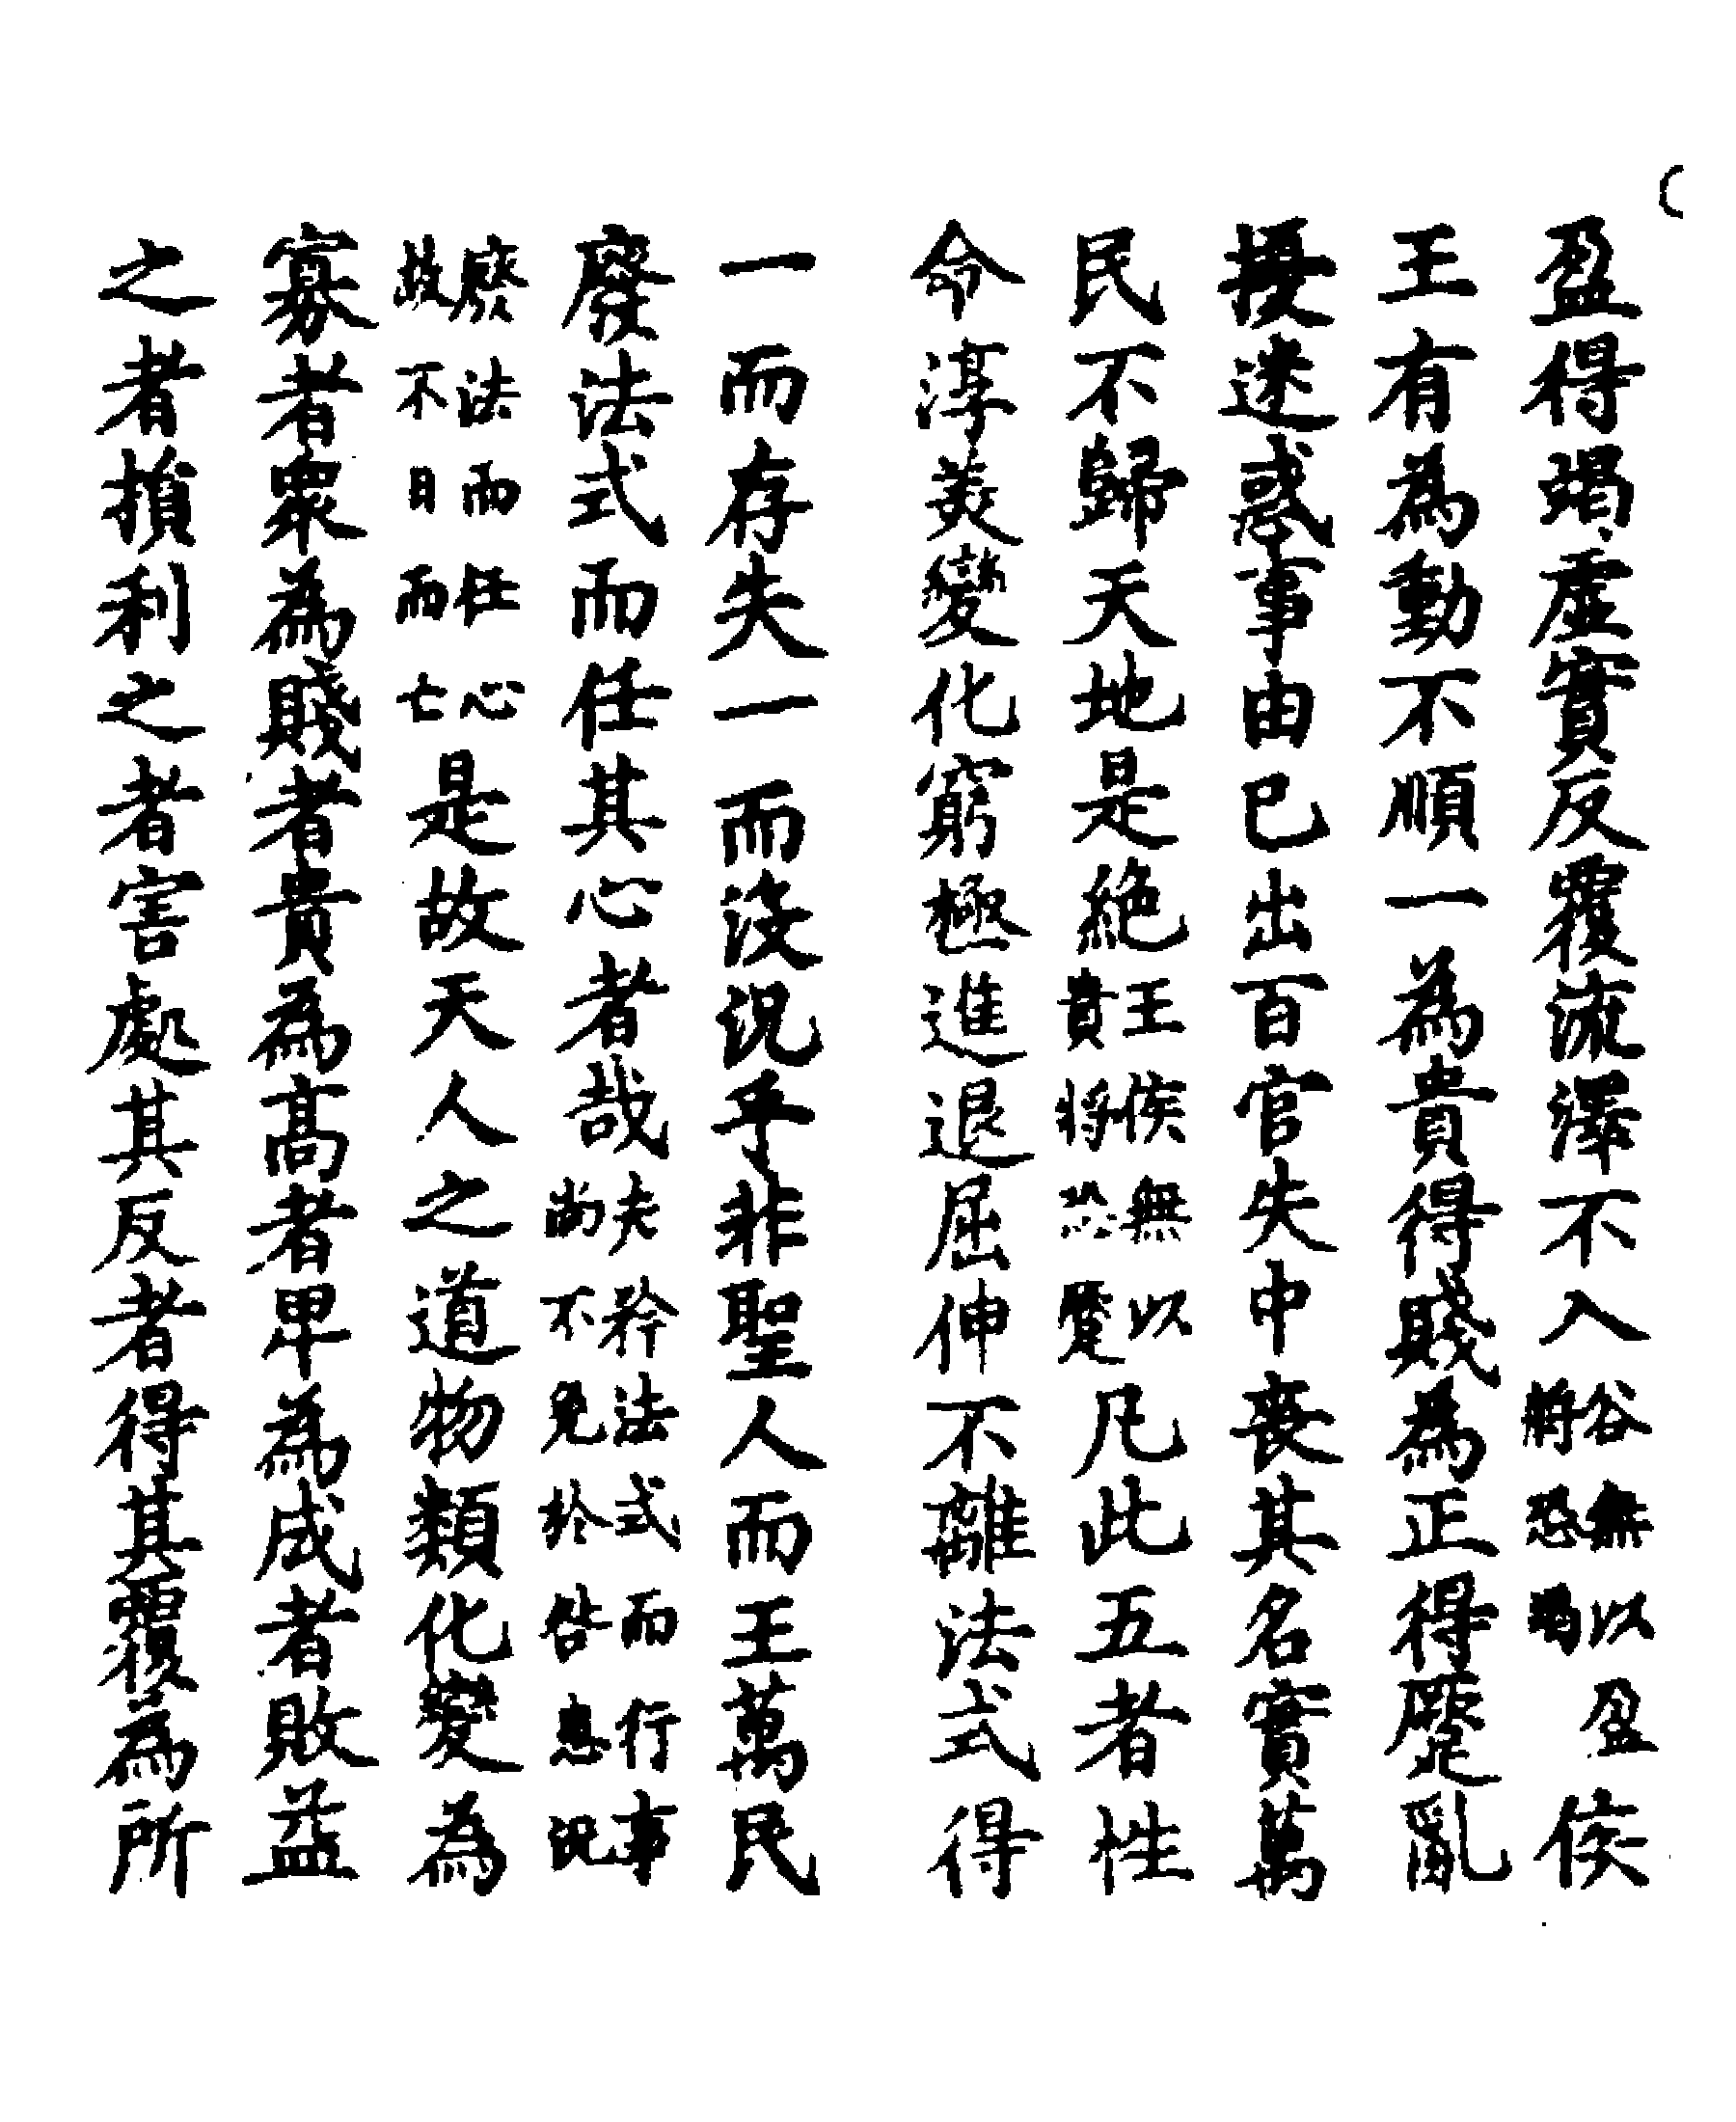 盈得竭虛實反覆流澤不入谷無以盈將恐竭侯
王有為動不順一為貴得賤為正得蹷亂
擾迷惑事由已出百官失中喪其名實萬
民不歸天地是絶王侯無以貴將恐蹷凡此五者性
命淳羙變化窮極進退屈伸不離法式得
一而存失一而沒况乎非聖人而王萬民
廢法式而任其心者哉夫矜法式而行事尚不免於咎患况
廢法而任心故不日而亡是故天人之道物類化變為
寡者衆為賤者貴為髙者卑為成者敗益
之者損利之者害處其反者得其覆為所